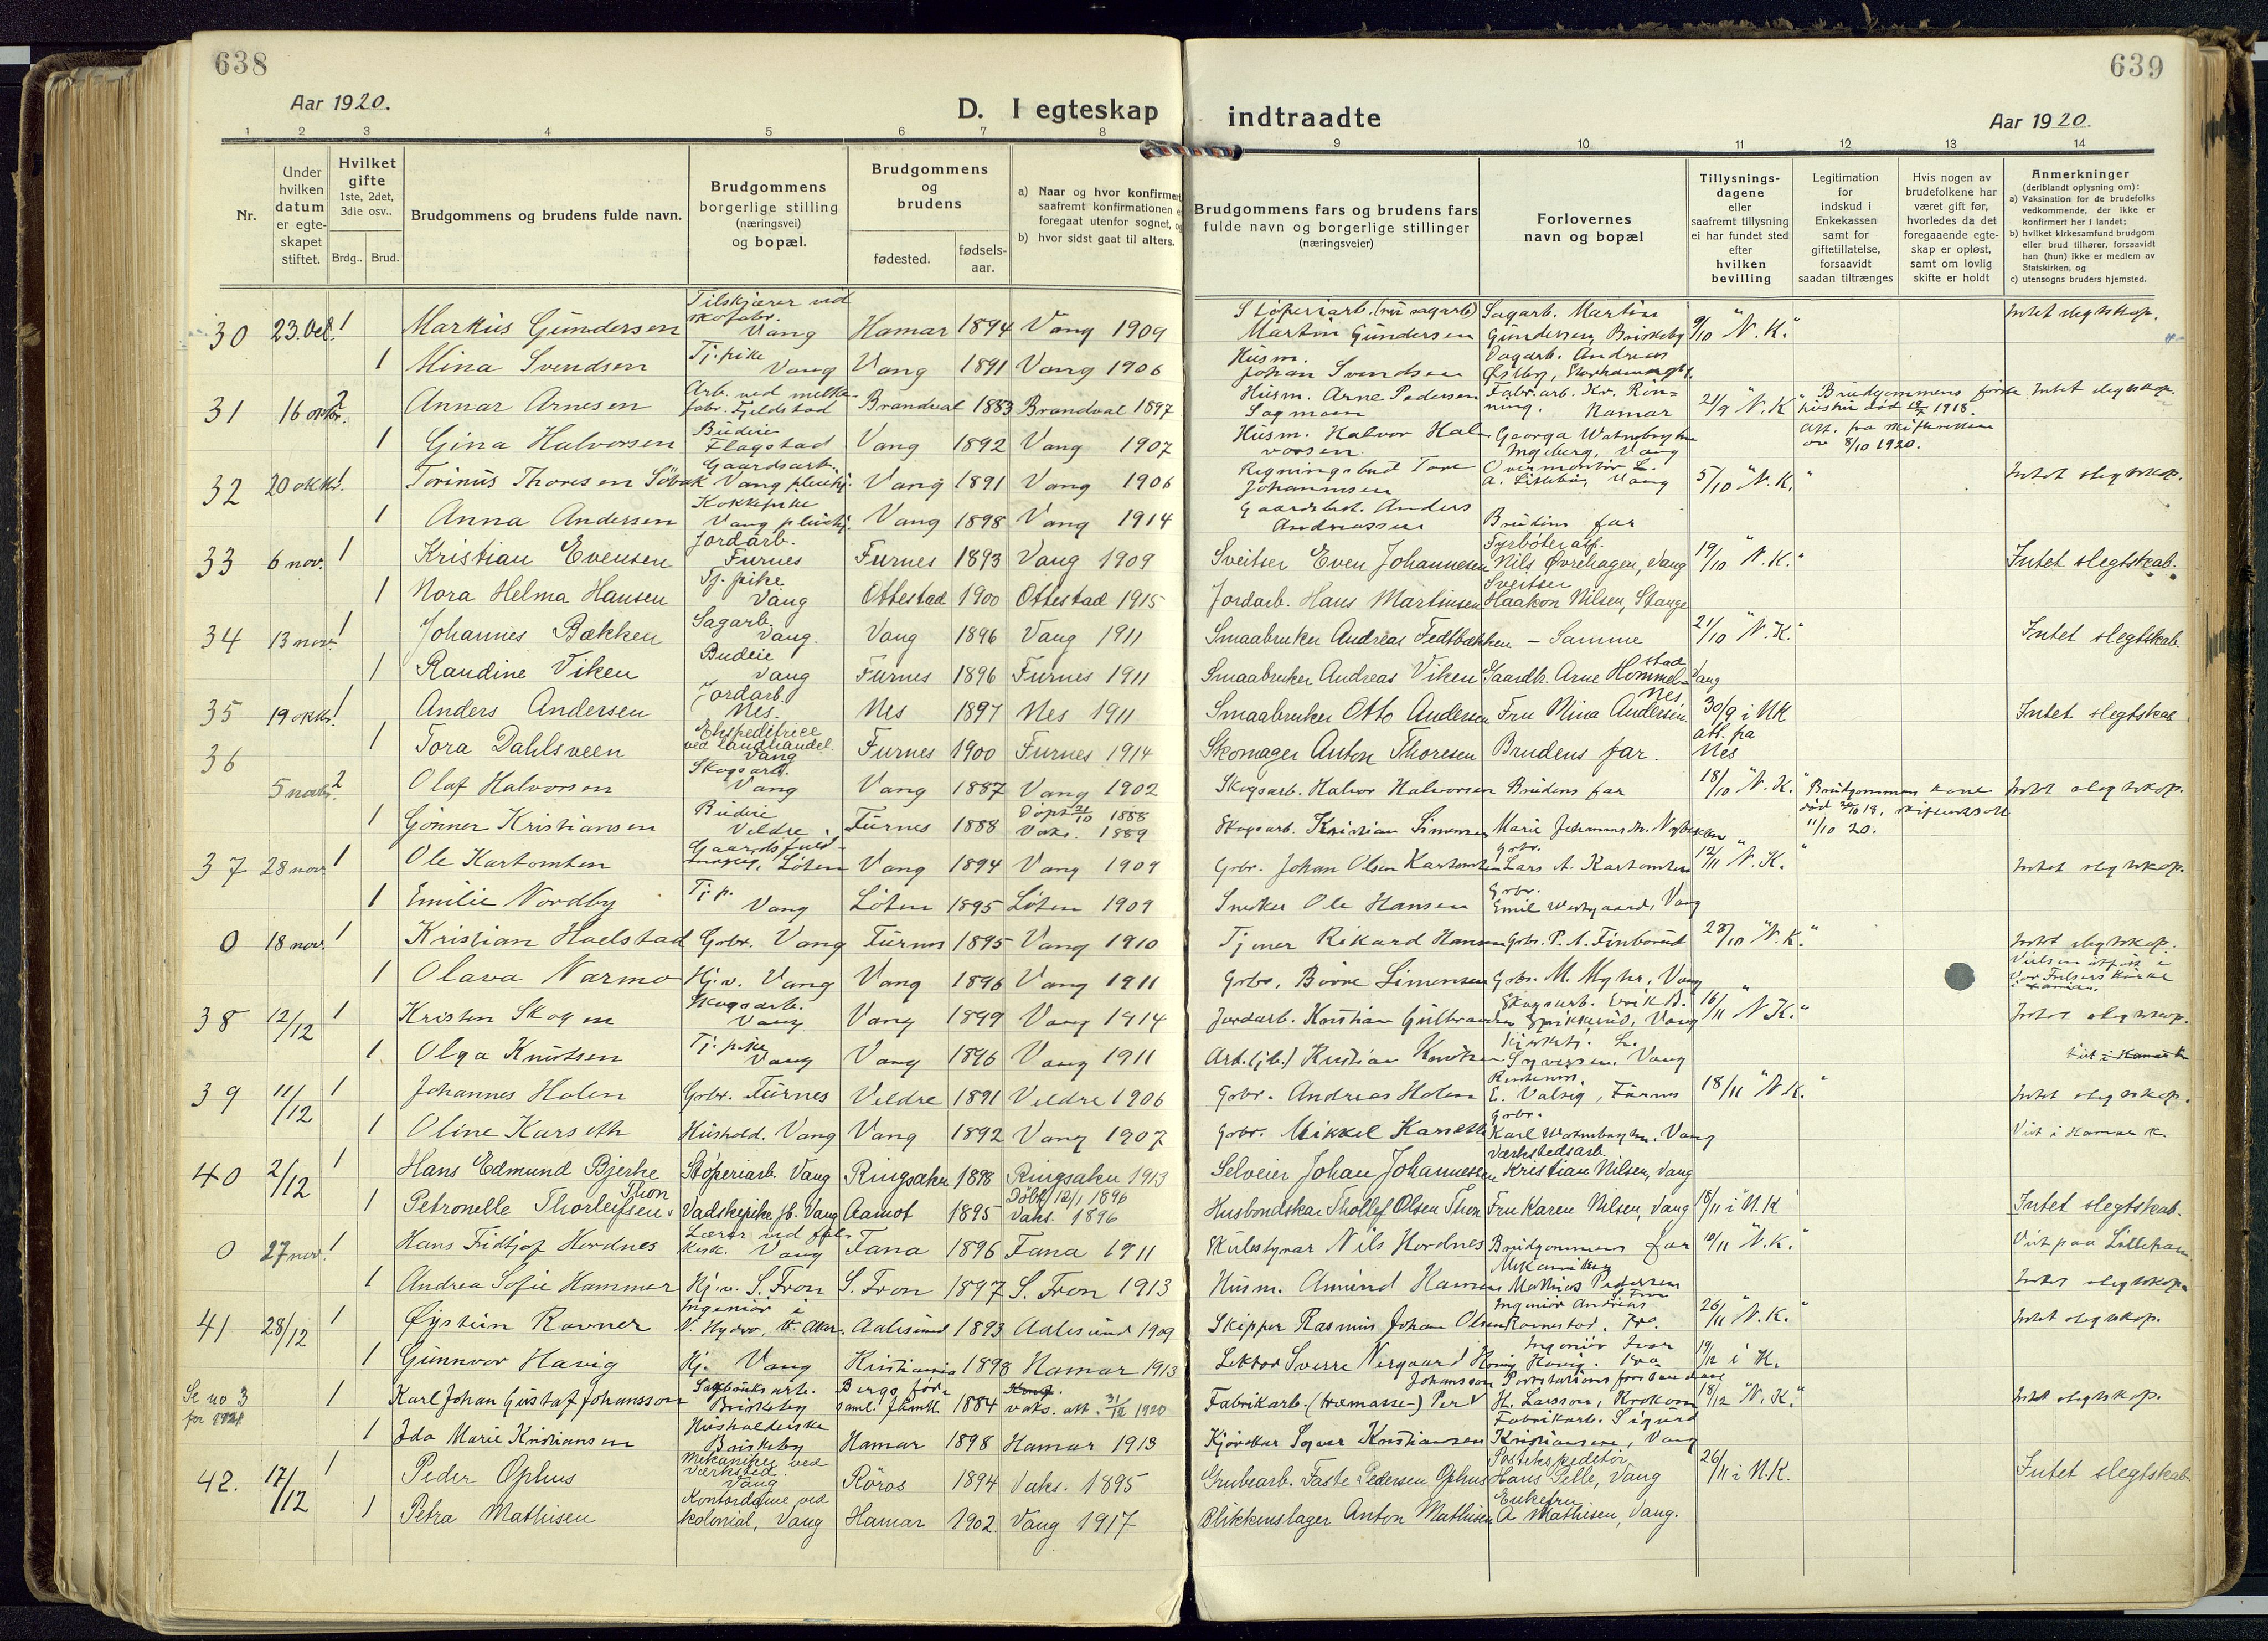 638
639
Aar 1920.
D. I egteskap indtraadte
Aar 1920.
1 2 3 4 5 6 7 8 9 10 11 12 13 14
Nr.
Under hvilken datum er egteskapet stiftet.
Hvilket gifte 1ste, 2det, 3die osv..
Brdg.. Brud.
Brudgommens og brudens fulde navn.
Brudgommens borgerlige stilling (næringsvei) og bopæl.
Brudgommens og brudens
fødested. fødsels-aar.
a) Naar og hvor konfirmert, saafremt konfirmationen foregaat utenfor sognet, og
b) hvor sidst gaat til alters.
Brudgommens fars og brudens fars fulde navn og borgerlige stillinger (næringsveier)
Forlovernes navn og bopæl
Tillysnings-dagene eller saafremt tillysning ei har fundet sted efter hvilken bevilling
Legitimation for indskud i Enkekassen samt for giftetillatelse, forsaavidt saadan tiltrænges
Hvis nogen av brudefolkene har været gift før, hvorledes da det foregaaende egteskap er opløst, samt om lovlig skifte er holdt
Anmerkninger (deriblandt oplysning om):
a) Vaksination for de brudefolks vedkommende, der ikke er konfirmert her i landet;
b) hvilket kirkesamfund brudgom eller brud tilhører, forsaavidt han (hun) ikke er medlem av Statskirken, og
c) utensogns bruders hjemsted.
30 23. Okt. 1 Markus Gundersen Tilskjærer ved skofabr. Vang Hamar 1894 Vang 1909 Støperiarb. (nu sagarb) Martin Gundersen Sagarb. Martin Gundersen, Briskeby 9/10 "N. K." Intet slegtskap.
1 Mina Svendsen Tj. pike Vang Vang 1891 Vang 1906 Husm. Johan Svendsen Dagarb. Andreas Østby,
31 16 oktbr. 2 Annar Arnesen Arb. ved melkefabr. Fjeldstad Brandval 1883 Brandval 1897 Husm. Arne Pedersen Sagmoen Fabr. arb. Kr. Rönning. Hamar 21/9 "N. K" Brudgommens første hustru død 1918. Att. fra skifteretten av 8/10 1920. Intet slegtskap.
1 Gina Halvorsen Budeie Flagstad Vang 1892 Vang 1907 Husm. Halvor Halvorsen Georga Ingeberg, Vang
32 20 oktbr. 1 Torinus Thoresen Söbak Gaardsarb. Vang pleiehj. Vang 1891 Vang 1906 Regningsbud Tore Johannesen Overmontör L. A. Lilleby, Vang 5/10 "N. K." Intet slegtskap.
1 Anna Andersen Kokkepike Vang pleiehj. Vang 1898 Vang 1914 Gaardbest. Anders Andreassen Brudens far
33 6 nov. 1 Kristian Evensen Jordarb. Furnes Furnes 1893 Vang 1909 Sveitser Even Johannesen Fyrbøter Nils Øvrehagen, Vang 19/10 "N. K." Intet slegtskab.
1 Nora Helma Hansen Tj. pike Vang Ottestad 1900 Ottestad 1915 Jordarb. Hans Martinsen Sveitser Haakon Nilsen, Stange
34 13 nov. 1 Johannes Bækken Sagarb. Vang. Vang 1896 Vang 1911 Smaabruker Andreas Fedtbækken – Samme 21/10 "N. K." Intet slegtskab.
1 Randine Viken Budeie Vang Furnes 1896 Furnes 1911 Smaabruker Andreas Viken Gaardbr. Arne Hommelstad Vang
35 19 oktbr. 1 Anders Andersen Jordarb. Nes. Nes 1897 Nes 1911 Smaabruker Otto Andersen Fru Nina Andersen Nes 30/9 i NK att. fra Nes Intet slegtskab
1 Tora Dahlsveen Ekspeditrice ved landhandel Vang Furnes 1900 Furnes 1914 Skomager Anton Thoresen Brudens far.
36 5 novbr. 2 Olaf Halvorsen Skogsarb. Vang Vang 1887 Vang 1902 Skogsarb. Halvor Halvorsen Brudens far 18/10 "N. K." Brudgommens kone død 20/10 18, skifteattest 11/10 20. Intet slegtskap.
1 Gönner Kristiansen Budeie Veldre Furnes 1888 Döpt 21/10 1888 Vaks. 1889 Skogsarb. Kristian Simensen Marie
37 28 nov. 1 Ole Kartomten Gaardsfuldmægtig, Löten Vang 1894 Vang 1909 Grbr. Johan Olsen Kartomten Grbr. Lars A. Kartomten 12/11 "N. K." Intet slegtskap.
1 Emilie Nordby Tj. p. Vang Löten 1895 Löten 1909 Snekker Ole Hansen Grbr. Emil Westgaard, Vang
0 18 nov. 1 Kristian Hoelstad Grbr. Vang Furnes 1895 Vang 1910 Tjener Rikard Hansen Grbr. P. A. Finborud 23/10 "N. K." Intet slegtskap.
1 Olava Narmo Hj. v. Vang Vang 1896 Vang 1911 Grbr. Börre Simensen Grbr. M. Myhr, Vang Vielsen utfört i Vor Frelsers kirke
38 12/12 1 Kristen Skogen Skogsarb. Vang Vang 1899 Vang 1914 Jordarb. Kristian Gulbrandsen Skogsarb. Erik A. Spikkerud, Vang 16/11 "N K." Intet slegtskap.
1 Olga Knutsen Tj. pike Vang Vang 1896 Vang 1911 Arb. (jb.) Kristian Knutsen Kirketj. L. Syversen. Vang Viet i Hamar k
39 11/12 1 Johannes Holen Grbr. Furnes Veldre 1891 Veldre 1906 Grbr. Andreas Holen E. Valsig, Furnes 18/11 "N K." Intet slegtskap.
1 Oline Karseth Hushold. Vang Vang 1892 Vang 1907 Grbr. Mikkel Karseth Grbr. Karl Vang Viet i Hamar k.
40 2/12 1 Hans Edmund Bjerke Støperiarb. Vang Ringsaker 1898 Ringsaker 1913 Selveier Johan Johannesen Værkstedsarb. Kristian Nilsen, Vang
1 Petronelle Thorleifsen Thon Vadskepike jb. Vang Aamot 1895 Döbt 12/1 1896 Vaks. 1896 Husbondskar Thollef Olsen Thon Fru Karen Nilsen, Vang 18/11 i N. K Intet slegtskab.
0 27 nov. 1 Hans Fridtjof Hordnes Lærer ved Vang Fana 1896 Fana 1911 Skulestyrar Nils Hordnes Brudgommens far 10/11 "N. K." Viet paa Lilleham
1 Andrea Sofie Hammer Hj. v. S. Fron S. Fron 1897 S. Fron 1913 Husm. Amund Hansen Mekaniker Mathias Pedersen S. Fron Intet slegtskap.
41 28/12 1 Øystein Ravner Ingeniør i N. Hydro, V. Aker. Aalesund 1893 Aalesund 1909 Skipper Rasmus Johan Olsen Ingeniør Andreas Ravnestad. 26/11 "N. K." Intet slegtskap.
1 Gunnvor Havig Hj. Vang Kristiania 1898 Hamar 1913 Lektor Sverre Nergaard Havig Ingeniør Ivar Havig. 19/12 i K.
Se no 3 for 1921 1 Karl Johan Gustaf Johansson Sagbruksarb. Briskeby Bergs församl. Jämtl. 1884 vaks. att. 31/12 1920 Fabrikarb. (træmasse-) Per Johansson H. Larsson, Krokom 18/12 "N. K." Intet slegtskap.
1 Ida Marie Kristiansen Husholderske Briskeby Hamar 1898 Hamar 1913 Kjörekar Syver Kristiansen Fabrikarb. Sigurd Kristiansen, Vang
42. 17/12 1 Peder Ophus Mekaniker ved værksted. Vang Röros 1894 Vaks. 1895 Grubearb. Faste Pedersen Ophus Postekspeditör Hans Selle, Vang 26/11 i N. K. Intet slegtskab.
1 Petra Mathisen Kontordame ved kolonial, Vang Hamar 1902. Vang 1917 Blikkenslager Anton Mathisen Enkefru A Mathisen, Vang.